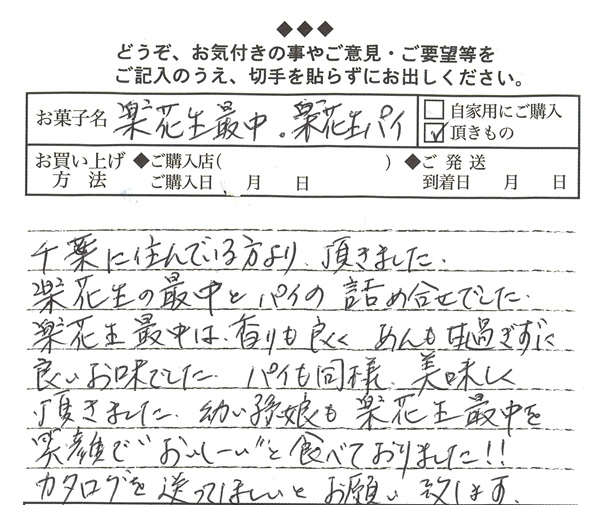 ◆◆◆
どうぞ、お気付きの事やご意見・ご要望等を
ご記入のうえ、切手を貼らずにお出しください。
お菓子名 楽花生最中。楽花生パイ □自家用にご購入
☑頂きもの
お買い上げ方法 ◆ご購入店( ) ◆ご発送
ご購入日 月 日 到着日 月 日
千葉に住んでいる方より、頂きました。
楽花生の最中とパイの詰め合せでした。
楽花生最中は、香りも良く あんも甘過ぎずに
良いお味でした。パイも同様、美味しく
頂きました。幼い孫娘も楽花生最中を
笑顔で"おいしーい"と食べておりました!!
カタログを送ってほしいとお願い致します。